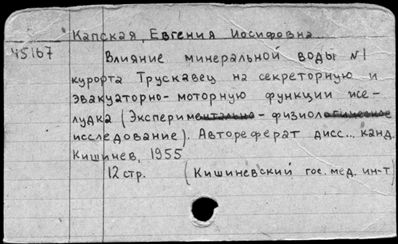 Капская, Евгения Иосифовна
45167
Влияние минеральной воды №1
курорта Трускавец на секреторную и
эвакуаторно-моторную функции же-
лудка (Экспериментально-физиологическое
исследование). Автореферат дисс... канд.
Кишинев, 1955
12 стр. (Кишиневский гос. мед. ин-т)